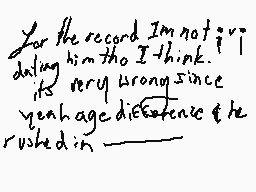 For the record Im not ;v;
dating him tho I think.
its very wrong since
yeah age difference & he
rushed in